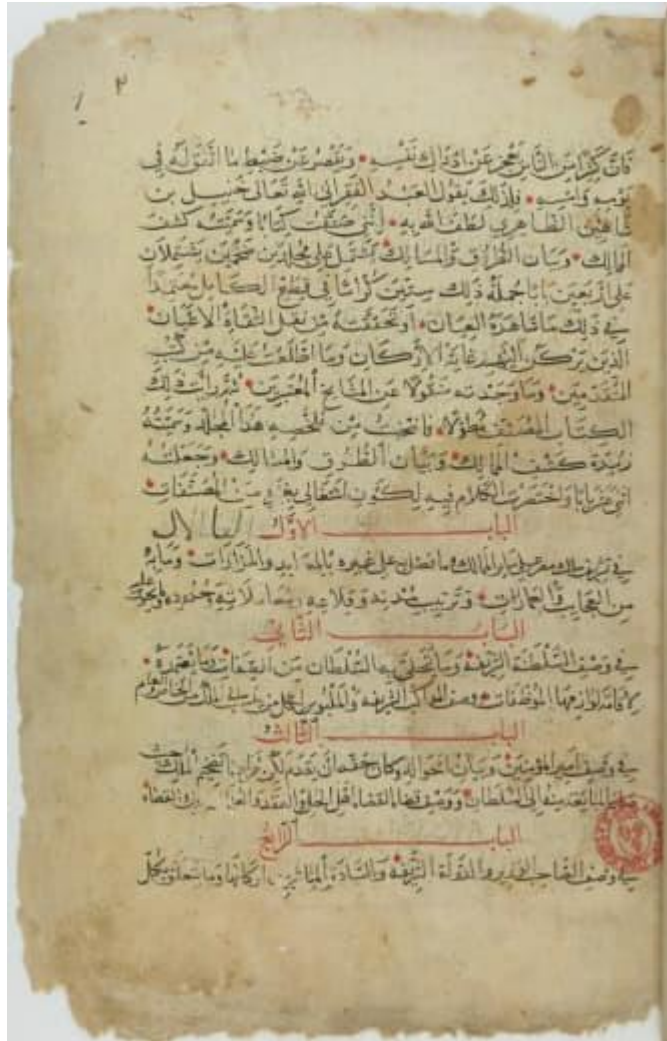 ٢
فان كثيرا من الناس عجز عن ادراك نفسه ويقصر عن ضبط ما اتفق له في
يومه وامسه فلذلك يقول العبد الفقير الى الله تعالى خليل بن
شاهين الظاهري لطف الله به انني صنفت كتابا وسميته كشف
الممالك وبيان الطرق والمسالك يشتمل على مجلدين ضخمين يشتملان
على اربعين بابا جملة ذلك ستين كراسا في قطع الكامل معتمدا
في ذلك ما شاهده العيان او تحققته من نقل الثقاة الاعيان
الذين يركن اليهم غاية الاركان وما اطلعت عليه من كتب
المتقدمين وما وجدته منقولا عن المشايخ المعتبرين ثم رايت ذلك
الكتاب المصنف مطولا فانتخبت من ملخصه هذا المجلد وسميته
زبدة كشف الممالك وبيان الطرق والمسالك وجعلته
اثنى عشر بابا واختصرت الكلام فيه لكون اشتغالي بغيره من المصنفات
الباب الاول
في تشريف ملك مصر على سائر الممالك وما فضل على غيره بالمعابد والمزارات وما به
من العجايب والعمارات وترتيب مدنه وقلاعه ومعاملاته وحدوده
الباب الثاني
في وصف السلطنة الشريفة وما تحلى به السلطان من الصفات وما يعتمده
لاقامة لوازمها الموظفات ووصف المواكب الشريفة والملبوس لكل من
الباب الثالث
في وصف امير المؤمنين وبيان احواله وكان حقه ان يقدم لكن
الى السلطان ووصف قضاة القضاة اهل الحل والعقد القضاه
الباب الرابع
في وصف الصاحب الوزير والدولة الشريفة والسادة المباشرين اركانها وما يتعلق بكل